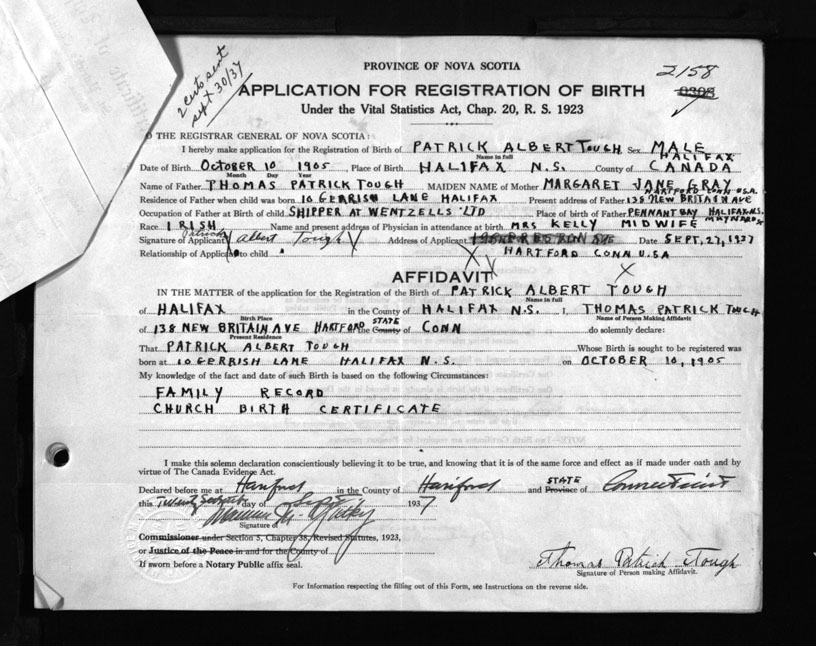 2 certs sent
Sept 30/37
PROVINCE OF NOVA SCOTIA
2158
APPLICATION FOR REGISTRATION OF BIRTH
Under the Vital Statistics Act, Chap. 20, R. S. 1923
O THE REGISTRAR GENERAL OF NOVA SCOTIA:
I hereby make application for the Registration of Birth of PATRICK ALBERT TOUGH Sex MALE
Name in full
HALIFAX
Date of Birth OCTOBER 10 1905, Place of Birth HALIFAX N.S. County of CANADA
Month Day Year
Name of Father THOMAS PATRICK TOUGH MAIDEN NAME of Mother MARGARET JANE GRAY
HARTFORD CONN U.S.A.
Residence of Father when child was born 10 GERRISH LANE HALIFAX Present address of Father 138 NEW BRITAIN AVE
Occupation of Father at Birth of child SHIPPER AT WENTZELLS LTD Place of birth of Father PENNANT BAY HALIFAX N.S.
MAYNARD ST
Race IRISH Name and present address of Physician in attendance at birth MRS KELLY MIDWIFE
Signature of Applicant Patrick Albert Tough Address of Applicant Date SEPT, 27, 1937
Relationship of Applicant to child HARTFORD CONN U.S.A
AFFIDAVIT
IN THE MATTER of the application for the Registration of the Birth of PATRICK ALBERT TOUGH
Name in full
of HALIFAX in the County of HALIFAX N.S. I, THOMAS PATRICK TOUGH
Birth Place Name of Person Making Affidavit
STATE
of 138 NEW BRITAIN AVE HARTFORD the County of CONN do solemnly declare:
Present Residence
That PATRICK ALBERT TOUGH Whose Birth is sought to be registered was
born at 10 GERRISH LANE HALIFAX N.S. on OCTOBER 10, 1905
My knowledge of the fact and date of such Birth is based on the following Circumstances:
FAMILY RECORD
CHURCH BIRTH CERTIFICATE
I make this solemn declaration conscientiously believing it to be true, and knowing that it is of the same force and effect as if made under oath and by
virtue of The Canada Evidence Act.
STATE
Declared before me at Hartford in the County of Hartford and Province of Connecticut
this Twenty Seventh day of Sept 1937
Signature of
Commissioner under Section 5, Chapter 38, Revised Statutes, 1923,
or Justice of the Peace in and for the County of
If sworn before a Notary Public affix seal.
Thomas Patrick Tough
Signature of Person making Affidavit.
For Information respecting the filling out of this Form, see Instructions on the reverse side.